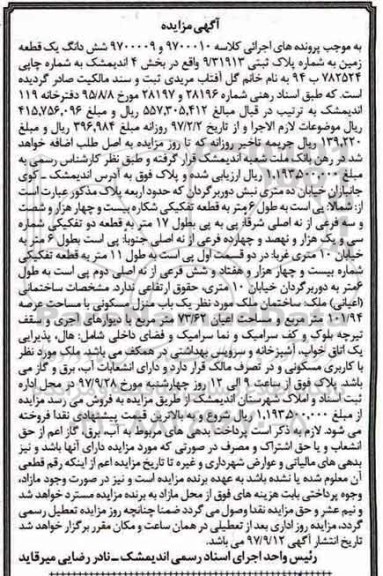 آگهی مزایده
به موجب پرونده های اجرائی کلاسه ۹۷۰۰۰۱۰ و ۹۷۰۰۰۰۹ شش دانگ یک قطعه
زمین به شماره پلاک ثبتی ۹/۳۱۹۱۳ واقع در بخش ۴ اندیمشک به شماره چاپی
۷۸۲۵۲۴ ب ۹۴ به نام خانم گل آفتاب مریدی ثبت و سند مالکیت صادر گردیده
است. که طبق اسناد رهنی شماره ۲۸۱۹۶ و ۲۸۱۹۷ مورخ ۹۵/۸/۸ دفترخانه ۱۱۹
اندیمشک به ترتیب در قبال مبالغ ۵۵۷,۳۰۵,۴۱۲ ریال و مبلغ ۴۱۵,۷۵۶,۰۹۶
ریال موضوعات لازم الاجرا و از تاریخ ۹۷/۲/۲ روزانه مبلغ ۳۹۶,۹۸۴ ریال و مبلغ
۱۳۹,۲۲۰ ریال جریمه تاخیر روزانه که تا روز مزایده به اصل طلب اضافه خواهد
شد در رهن بانک ملت شعبه اندیمشک قرار گرفته و طبق نظر کارشناس رسمی به
مبلغ ۱,۱۹۳,۵۰۰,۰۰۰ ریال ارزیابی شده و پلاک فوق به آدرس اندیمشک ـ کوی
جانبازان خیابان ده متری نبش دوربرگردان که حدود اربعه پلاک مذکور عبارت است
از: شمالا: پی است به طول ۶ متر به قطعه تفکیکی شکاره بیست و چهار هزار و شصت
و سه فرعی از نه اصلی شرقا: پی به پی بطول ۱۷ متر به قطعه دو تفکیکی شماره
سی و یک هزار و نهصد و چهارده فرعی از نه اصلی، جنوبا: پی است بطول ۶ متر به
خیابان ۱۰ متری غربا: در دو قسمت اول پی است به طول ۱۱ متر به قطعه تفکیکی
شماره بیست و چهار هزار و هفتاد و شش فرعی از نه اصلی دوم پی است به طول
۶متر به دوربرگردان خیابان ۱۰ متری. حقوق ارتفاقی ندارد. مشخصات ساختمانی
(اعیانی) ملک: ساختمان ملک مورد نظر یک باب منزل مسکونی با مساحت عرصه
۱۰۱/۹۴ مترمربع و مساحت اعیان ۷۳/۶۲ متر مربع با دیوارهای آجری و سقف
تیرچه بلوک و کف سرامیک و نما سرامیک و فضای داخلی شامل: هال، پذیرایی
یک اتاق خواب، آشپزخانه و سرویس بهداشتی در همکف می باشد. ملک مورد نظر
با کاربری مسکونی و در تصرف مالک قرار دارد و دارای انشعابات آب، برق و گاز می
باشد. پلاک فوق از ساعت ۹ الی ۱۲ روز چهارشنبه مورخ ۹۷/۹/۲۸ در محل اداره
ثبت اسناد و املاک شهرستان اندیمشک از طریق مزایده به فروش می رسد. مزایده
از مبلغ ۱,۱۹۳,۵۰۰,۰۰۰ ریال شروع و به بالاترین قیمت پیشنهادی نقدا فروخته
می شود. لازم به ذکر است پرداخت بدهی های مربوط به آب، برق، گاز اعم از حق
انشعاب و یا حق اشتراک و مصرف در صورتی که مورد مزایده دارای آنها باشد و نیز
بدهی های مالیاتی و عوارض شهرداری و غیره تا تاریخ مزایده اعم از اینکه رقم قطعی
آن معلوم شده یا نشده باشد به عهده برنده مزایده است و نیز در صورت وجود مازاد،
وجوه پرداختی بابت هزینه های فوق از محل مازاد به برنده مزایده مسترد خواهد شد
و نیم عشر و حق مزایده نقدا وصول می گردد ضمنا چنانچه روز مزایده تعطیل رسمی
گردد، مزایده روز اداری بعد از تعطیلی در همان ساعت و مکان مقرر برگزار خواهد شد
تاریخ انتشار آگهی: ۹۷/۹/۱۲ می باشد.
رئیس واحد اجرای اسناد رسمی اندیمشک ـ نادر رضایی میرقاید